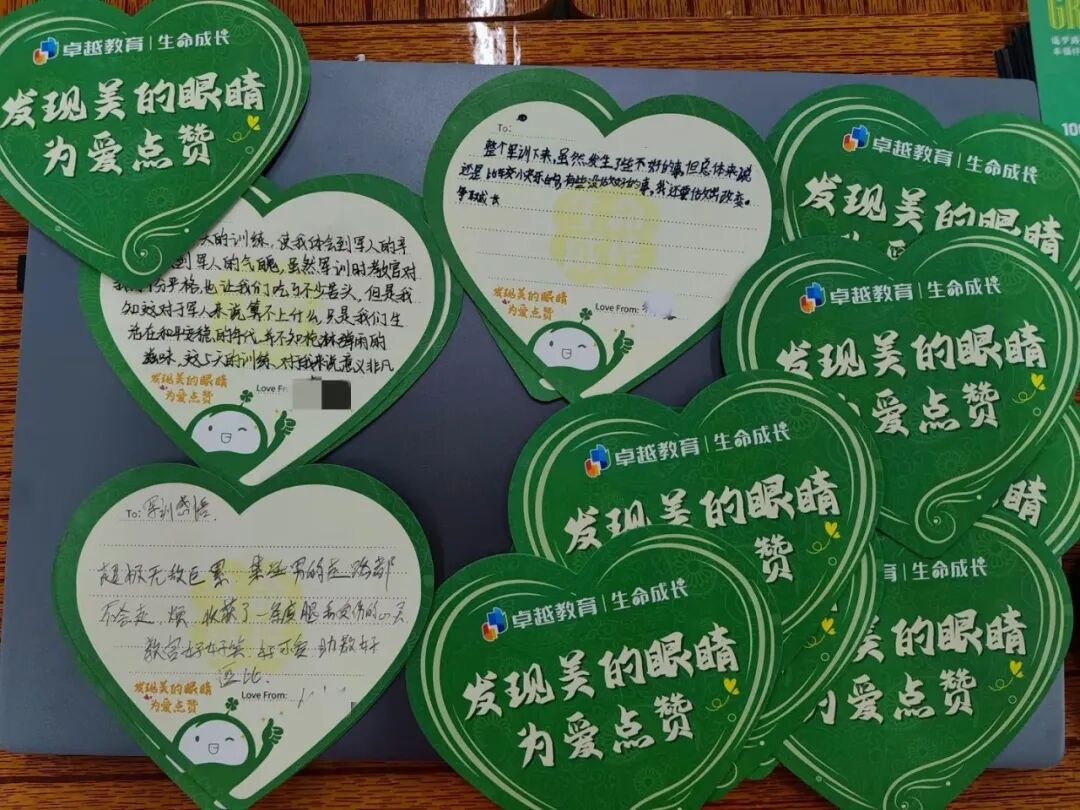 卓越教育 | 生命成长
发现美的眼睛
为爱点赞
To:
整个军训下来,虽然发生了些不好的事,但总体来说
还是比较快乐的 有些没做好的事,我还要做出改变。
争取成长
发现美的眼睛
为爱点赞
Love From:
天的训练,使我体会到军人的辛
到军人的气魄,虽然军训时教官对
我们 严格,也让我们吃了不少苦头,但是我
知道这对于军人来说算不上什么,只是我们生
活在和平安稳的年代,并不知枪林弹雨的
滋味,这5天的训练,对我来说意义非凡
发现美的眼睛
为爱点赞
Love Fr
To: 军训感悟
超级无敌巨累 某些男的走路都
不会走 烦 收获了一条废腿和受伤的心灵
教官好好笑 好可爱 助教好
逗比.
发现美的眼睛
为爱点赞
Love From:
卓越教育 | 生命成长
发现美的眼睛
卓越教育 | 生命成长
发现美的眼睛
爱点赞
卓越教育 | 生命成长
发现美的眼睛
赞
卓越教育 | 生命成长
发现美的眼睛
为爱点赞
育 | 生命成长
的眼睛
为爱点赞
眼睛
10